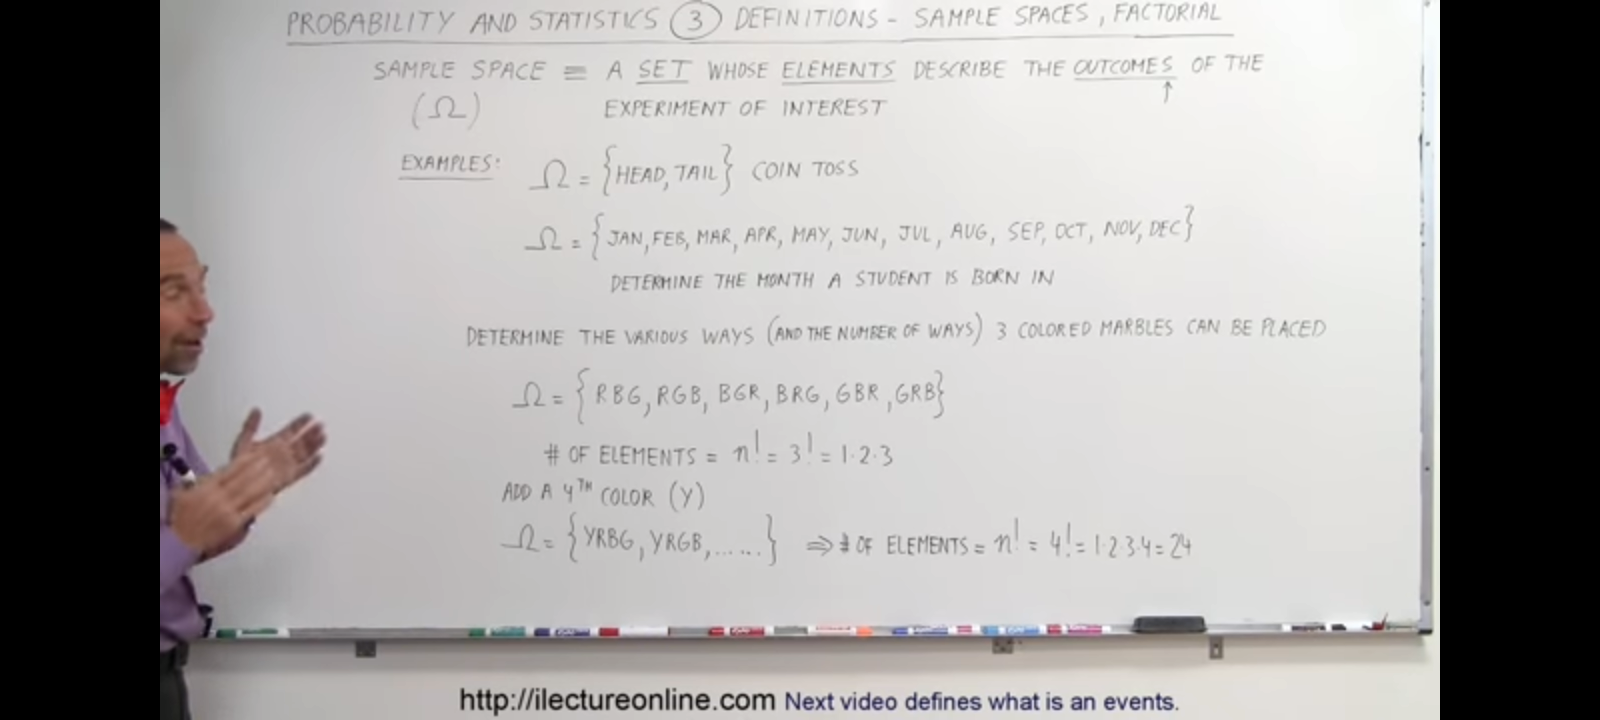 PROBABILITY AND STATISTICS ③ DEFINITIONS - SAMPLE SPACES, FACTORIAL
SAMPLE SPACE ≡ A SET WHOSE ELEMENTS DESCRIBE THE OUTCOMES OF THE
(Ω) EXPERIMENT OF INTEREST
EXAMPLES: Ω = {HEAD, TAIL} COIN TOSS
Ω = {JAN, FEB, MAR, APR, MAY, JUN, JUL, AUG, SEP, OCT, NOV, DEC}
DETERMINE THE MONTH A STUDENT IS BORN IN
DETERMINE THE VARIOUS WAYS (AND THE NUMBER OF WAYS) 3 COLORED MARBLES CAN BE PLACED
Ω = {RBG, RGB, BGR, BRG, GBR, GRB}
# OF ELEMENTS = n! = 3! = 1·2·3
ADD A 4TH COLOR (Y)
Ω = {YRBG, YRGB, ......} ⇒ # OF ELEMENTS = n! = 4! = 1·2·3·4 = 24
http://ilectureonline.com Next video defines what is an events.